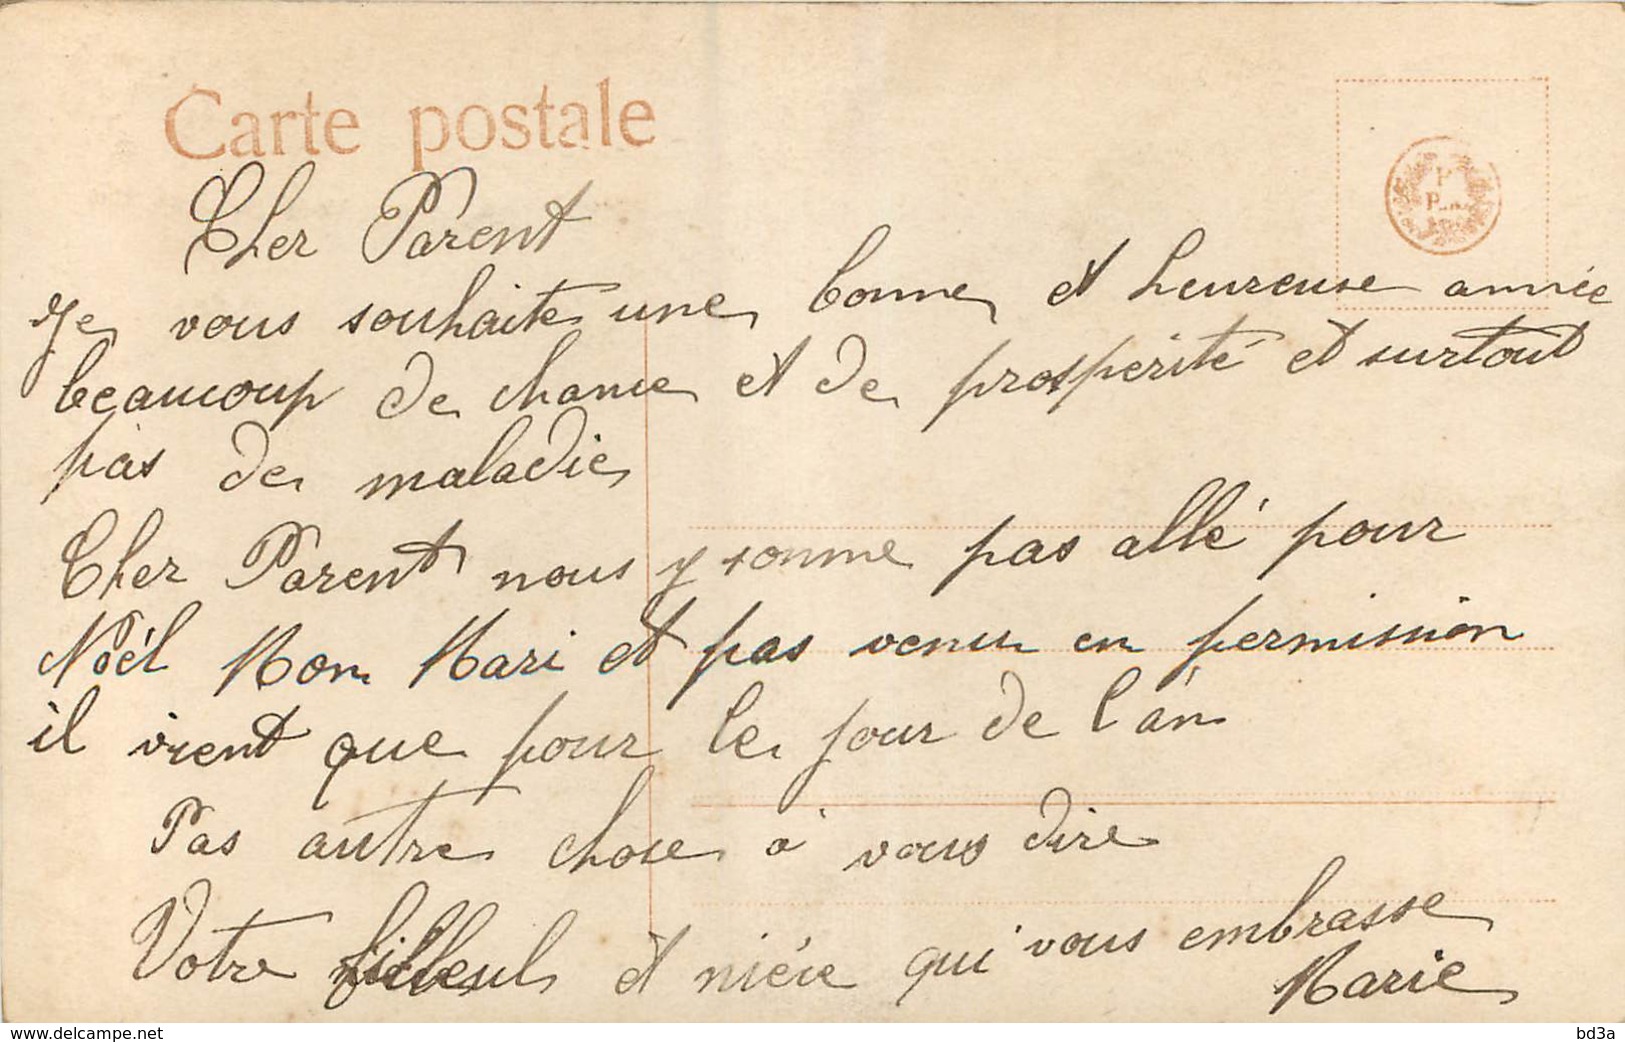 Carte postale
Cher Parent
Je vous souhaite une bonne et heureuse année
beaucoup de chance et de prosperité et surtout
pas de maladie
Cher Parent nous y somme pas allé pour
Noél Mon Mari et pas venu en permission
il vient que pour le jour de l'an
Pas autre chose à vous dire
Votre filleul et niéce qui vous embrasse
Marie
www.delcampe.net
bd3a